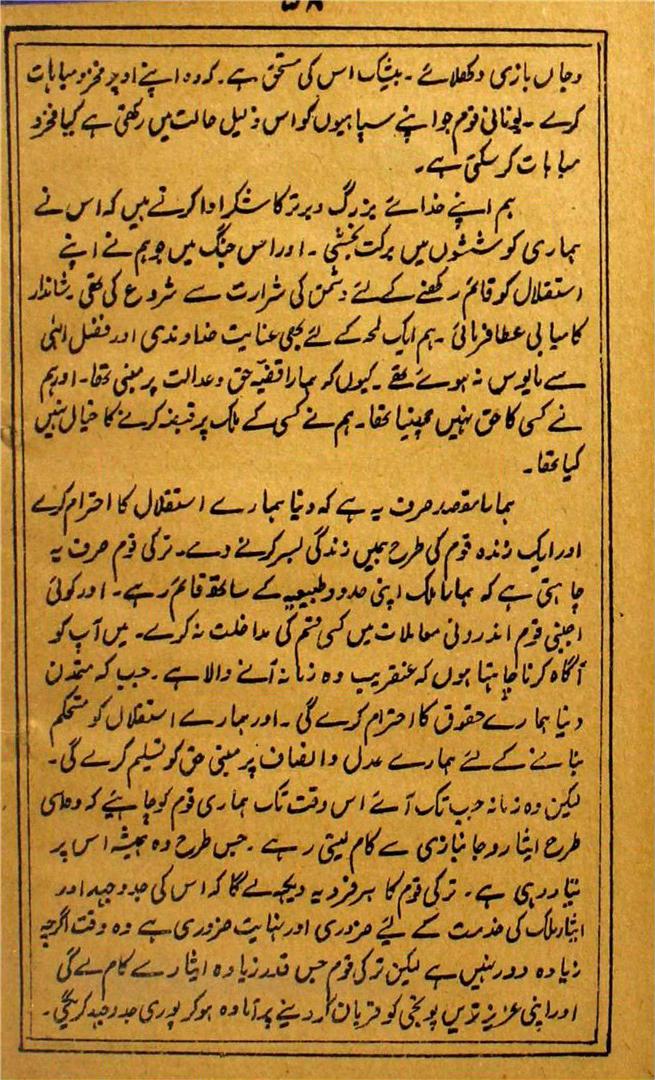 ۵۸
وجاں بازی دکھلائے ۔ بیشک اس کی مستحق ہے ۔ کہ وہ اپنے اوپر فخر و مباہات
کرے ۔ یونانی قوم جو اپنے سپاہیوں کو اس ذلیل حالت میں رکھتی ہے کیا فخر و
مباہات کر سکتی ہے ۔
ہم اپنے خدائے بزرگ و برتر کا شکر ادا کرتے ہیں کہ اس نے
ہماری کوششوں میں برکت بخشی ۔ اور اس جنگ میں جو ہم نے اپنے
استقلال کو قائم رکھنے کے لئے دشمن کی شرارت سے شروع کی تھی شاندار
کامیابی عطا فرمائی ۔ ہم ایک لمحہ کے لئے بھی عنایت خداوندی اور فضل الٰہی
سے مایوس نہ ہوئے تھے ۔ کیوں کہ ہمارا قضیہ حق و عدالت پر مبنی تھا ۔ اور ہم
نے کسی کا حق نہیں چھینا تھا ۔ ہم نے کسی کے ملک پر قبضہ کرنے کا خیال نہیں
کیا تھا ۔
ہمارا مقصد صرف یہ ہے کہ دنیا ہمارے استقلال کا احترام کرے
اور ایک زندہ قوم کی طرح ہمیں زندگی بسر کرنے دے ۔ ترکی قوم صرف یہ
چاہتی ہے کہ ہمارا ملک اپنی حدود طبیعیہ کے ساتھ قائم رہے ۔ اور کوئی
اجنبی قوم اندرونی معاملات میں کسی قسم کی مداخلت نہ کرے ۔ میں آپ کو
آگاہ کرنا چاہتا ہوں کہ عنقریب وہ زمانہ آنے والا ہے ۔ جب کہ متمدن
دنیا ہمارے حقوق کا احترام کرے گی ۔ اور ہمارے استقلال کو مستحکم
بنانے کے لئے ہمارے عدل و انصاف پر مبنی حق کو تسلیم کرے گی ۔
لیکن وہ زمانہ جب تک آئے اس وقت تک ہماری قوم کو چاہئیے کہ وہ اسی
طرح ایثار و جانبازی سے کام لیتی رہے ۔ جس طرح وہ ہمیشہ اس پر
تیار رہی ہے ۔ ترکی قوم کا ہر فرد یہ دیکھے گا کہ اس کی جدوجہد اور
ایثار ملک کی خدمت کے لئے ضروری اور نہایت ضروری ہے وہ وقت اگرچہ
زیادہ دور نہیں ہے لیکن ترکی قوم جس قدر زیادہ ایثار سے کام لے گی
اور اپنی عزیز ترین پونجی کو قربان کر دینے پر آمادہ ہو کر پوری جدوجہد کریگی ۔